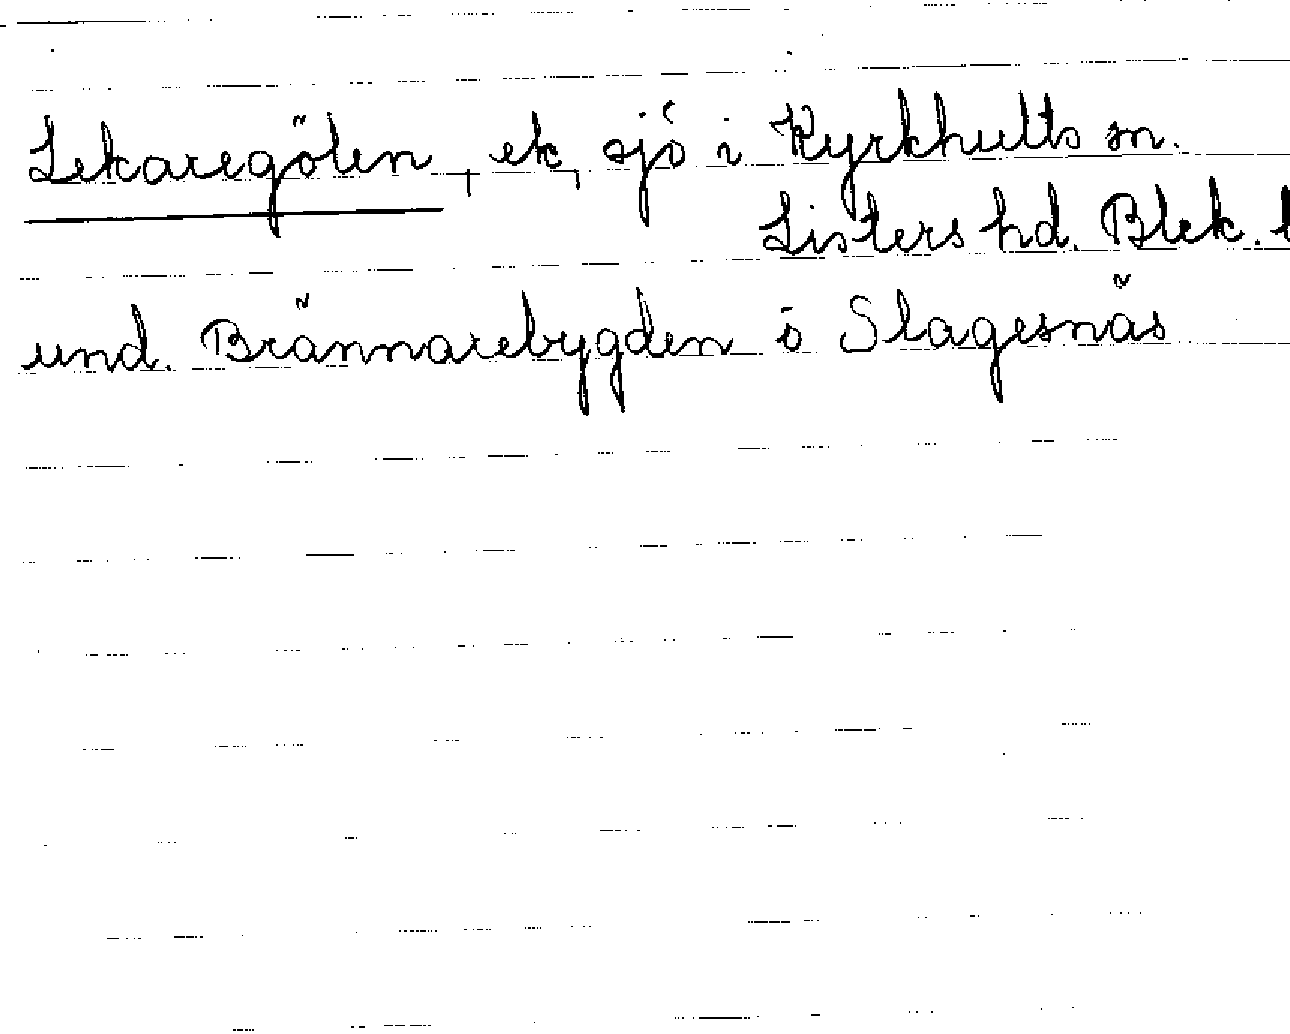 Lekaregölen, ek, sjö i Kyrkhults sn.
Listers hd. Blek. l
und. Brännarebygden o Slagesnäs